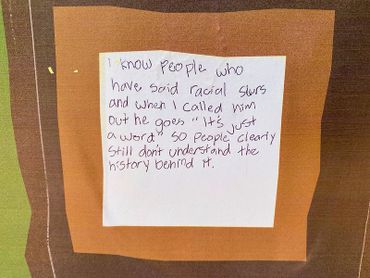 I know people who
have said racial slurs
and when I called him
out he goes "it's just
a word" so people clearly
still don't understand the
history behind it.